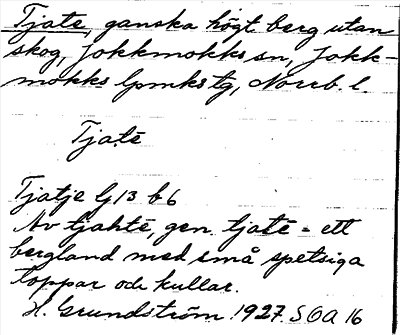 Tjate, ganska högt berg utan
skog, Jokkmokks sn, Jokk-
mokks lpmkstg, Norrb. l.
Tjatè
Tjatje G13 b6
Av tjahtè, gen. tjatè = ett
bergland med små spetsiga
toppar och kullar.
H. Grundström 1927. SOA 16